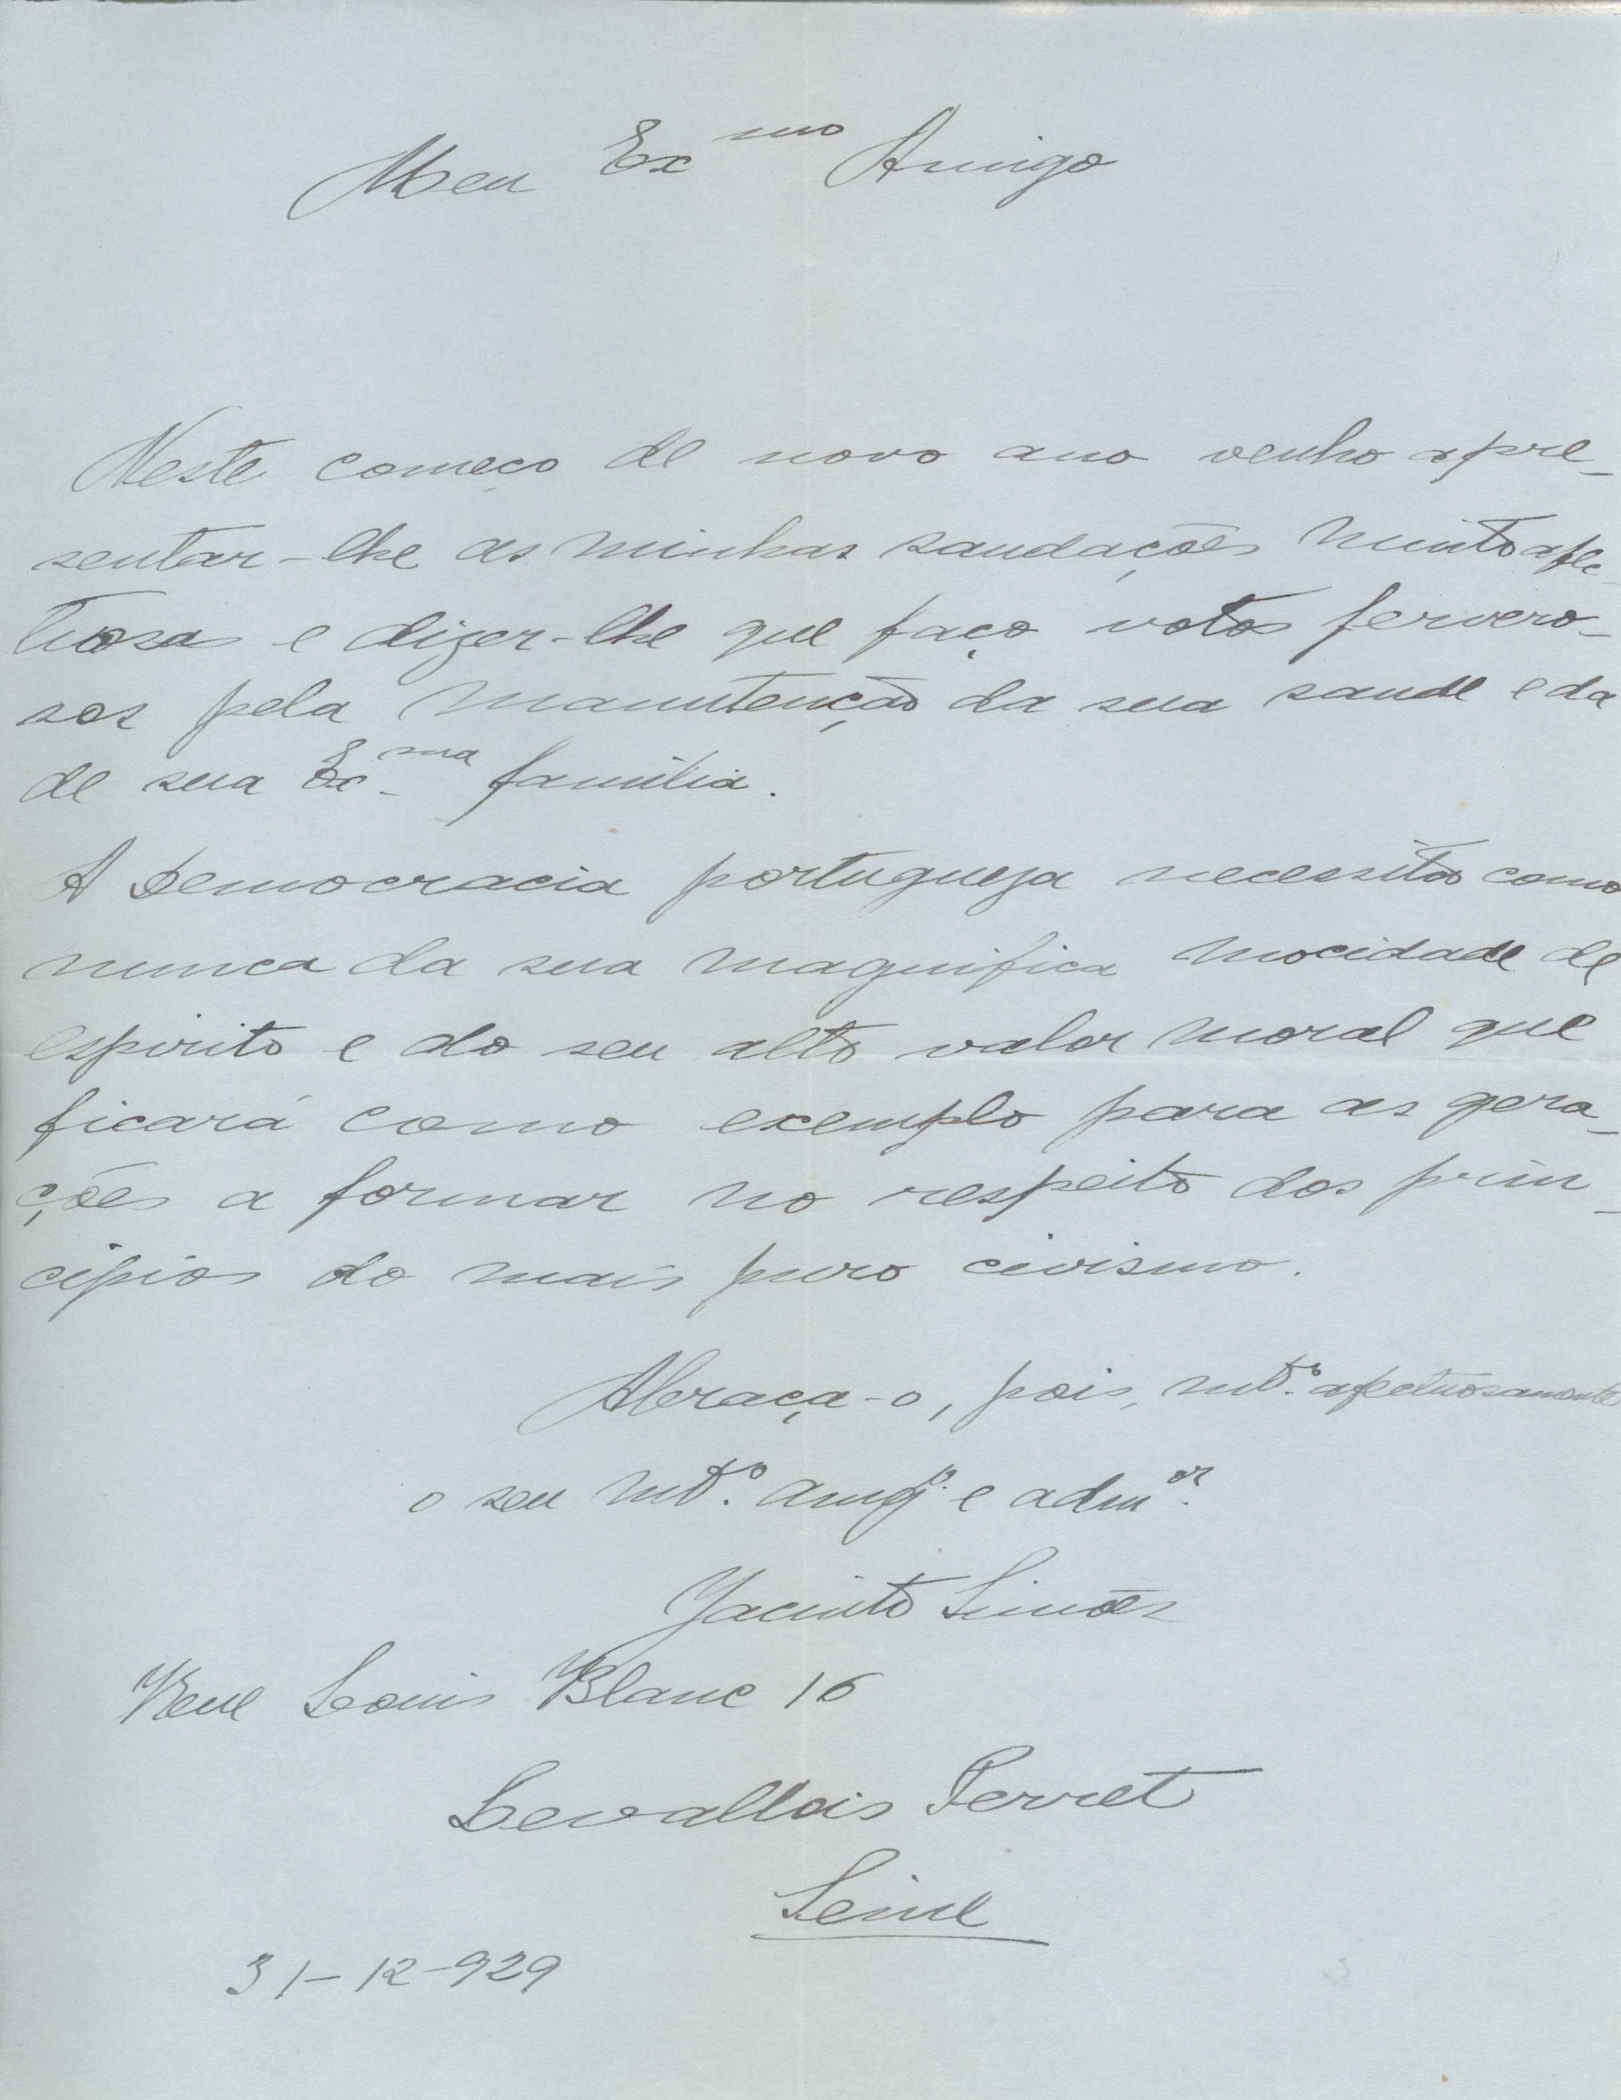 Meu Exmo Amigo
Neste começo de novo ano venho apre-
sentar-lhe as minhas saudações muito afe-
tuosas e dizer-lhe que faço votos fervero-
sos pela manutenção da sua saude e da
de sua Exma familia.
A Democracia portugueza necessita como
nunca da sua magnifica mocidade de
espirito e do seu alto valor moral que
ficará como exemplo para as gera-
ções a formar no respeito dos prin-
cipios do mais puro civismo.
Abraça-o, pois, mto. afetuosamente
o seu mto. amgo. e admor.
Jacinto Simões
Rue Louis Blanc 16
Levallois Perret
Seine
31-12-929